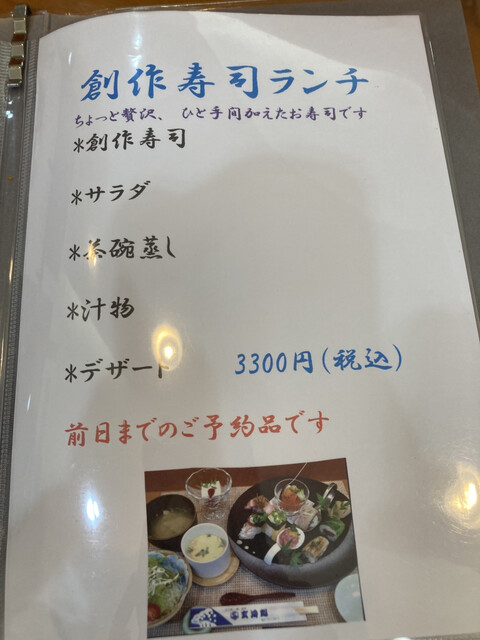 創作寿司ランチ
ちょっと贅沢、ひと手间加えたお寿司です
*創作寿司
*サラダ
*茶碗蒸し
*汁物
*デザート 3300円(税込)
前日までのご予約品です